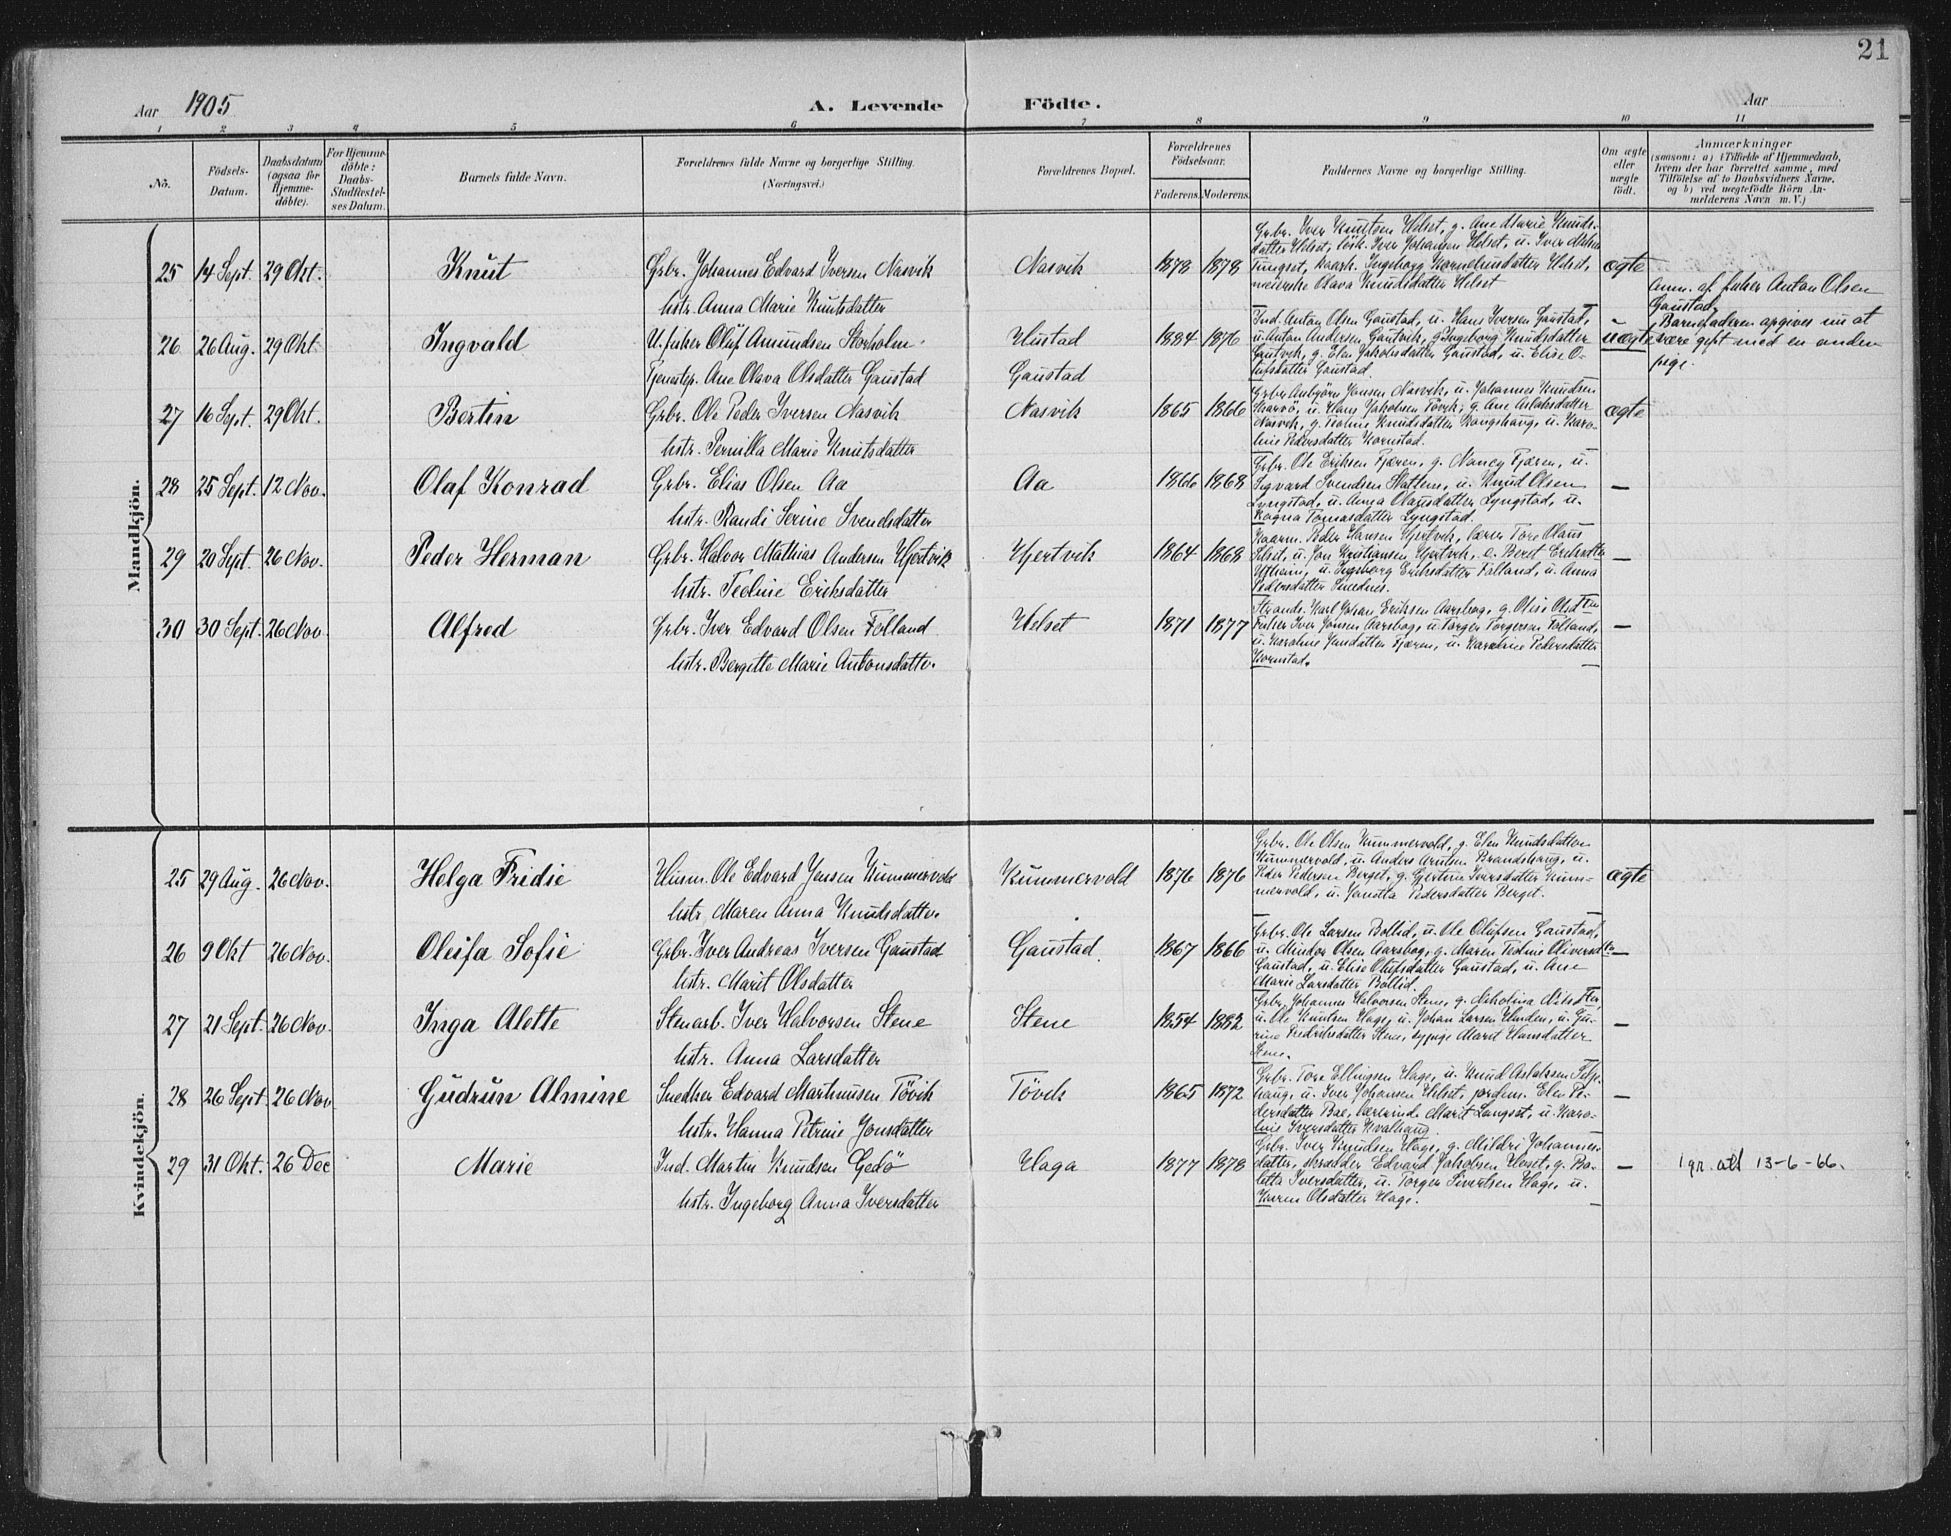 21
Aar 1905 A. Levende Födte. Aar
1 2 3 4 5 6 7 8 9 10 11
No. Födsels-Datum. Daabsdatum (ogsaa for Hjemme-döbte). For Hjemme-döbte: Daabs-Stadfæstel-ses Datum. Barnets fulde Navn. Forældrenes fulde Navne og borgerlige Stilling. (Næringsvei.) Forældrenes Bopæl. Forældrenes Födselsaar. Faderens. Moderens. Faddernes Navne og borgerlige Stilling. Om ægte eller uægte födt. Anmærkninger
(saasom: a) i Tilfælde af Hjemmedaab,
hvem der har forrettet samme, med
Tilföielse af to Daabsvidners Navne,
og b) ved uægtefödte Börn An-
melderens Navn m. V.)
Mandkjön.
25 14 Sept. 29 Okt. Knut Grbr. Johannes Edvard Iversen Nasvik
hstr. Anna Marie Knutsdatter
Nasvik 1878 1878
Grbr. Iver Knutsen Helset, g. Ane Marie Knuds-
datter Helset, Iver Johansen Helset, u. Iver
Tungset, Ingeborg Kornelinsdatter Helset,
meierske Olava Knudsdatter Helset
ægte
26 26 Aug. 29 Okt. Ingvald U. fisker Oluf Amundsen Storholm
Tjenestep. Ane Olava Olsdatter Gaustad
Hustad
Gaustad
1884 1876
Ind. Anton Olsen Gaustad, u. Hans Iversen Gaustad,
u. Anton Andersen Gautvik, g. Ingeborg Knudsdatter
Gautvik, g. Elen Jakobsdatter Gaustad, u. Elise O-
lufsdatter Gaustad.
uægte
Anm. af fisker Anton Olsen
Gaustad.
Barnefaderen opgives nu at
være gift med en anden
pige.
27 16 Sept. 29 Okt. Bertin Grbr. Ole Peder Iversen Nasvik
hstr. Pernilla Marie Knutsdatter
Nasvik 1865 1866
Grbr. Asbjörn Jansen Nasvik, u. Johannes Knudsen
u. Hans Jakobsen Tövik, g. Ane Aslaksdatter
Nasvik, g. Knudsdatter u. Karo-
line Pedersdatter Kornstad.
ægte
28 25 Sept. 12 Nov. Olaf Konrad Grbr. Elias Olsen Aa
hstr. Randi Serine Svendsdatter
Aa 1866 1868
Grbr. Ole Eriksen Fjæren, g. Nancy Fjæren, u.
Sigvard Svendsen u. Knud Olsen
Lyngstad, u. Anna Olausdatter Lyngstad, u.
Ragna Tomasdatter Lyngstad.
—
29 20 Sept. 26 Nov. Peder Herman Grbr. Halvor Mathias Andersen Hjertvik
hstr. Eriksdatter
Hjertvik 1864 1868
Peder Hansen Hjertvik, lærer Tore Olaus
u. Jon Kristiansen Hjertvik, e. Beret Eriksdatter
u. Ingeborg Eriksdatter Folland, u. Anna
Pedersdatter
—
30 30 Sept. 26 Nov. Alfred Grbr. Iver Edvard Olsen Folland
hstr. Bergitte Marie Antonsdatter
Helset 1871 1877
Karl Johan Eriksen Aarsbog, g. Olise
fisker Iver Jonsen Aarsbog, u. Torger Torgersen Folland,
u. Karoline Jensdatter Fjæren, u. Karoline Pedersdatter
Kornstad.
—
Kvindekjön.
25 29 Aug. 26 Nov. Helga Fridie Husm. Ole Edvard Jensen Kummervold
hstr. Maren Anna Knudsdatter
Kummervold 1876 1876
Grbr. Ole Olsen Kummervold, g. Elen Knudsdatter
Kummervold, u. Anders Arntsen Brandshaug, u.
Peder Pedersen Berget, g. Gjertine Iversdatter Kum-
mervold, u. Janetta Pedersdatter Berget.
ægte
26 9 Okt 26 Nov. Oleifa Sofie Grbr. Iver Andreas Iversen Gaustad
hstr. Marit Olsdatter
Gaustad. 1867 1866
Grbr. Ole Larsen Bollid, u. Ole Olufsen Gaustad,
u. Mindor Olsen Aarsbog, g. Maren
Gaustad, u. Elise Olufsdatter Gaustad, u. Ane
Marie Larsdatter Bollid.
—
27 21 Sept. 26 Nov. Inga Alette Stenarb. Iver Halvorsen Stene
hstr. Anna Larsdatter
Stene 1854 1882
Grbr. Johannes Halvorsen Stene, g. Nikolina
u. Ole Knutsen Hage, u. Johan Larsen u. Gu-
rine Fredriksdatter Stene, sypige Marit Hansdatter
Stene.
—
28 26 Sept. 26 Nov Gudrun Almine Snedker Edvard Martinusen Tövik
hstr. Hanna Petrine Jonsdatter
Tövik 1865 1872
Grbr. Tore Ellingsen Hage, u. Knud Aslaksen
haug, u. Iver Johansen Helset, jordm. Elen Pe-
dersdatter Bae, lærerinde Marit Langset, u. Karo-
line Iversdatter Kvalhaug.
—
29 31 Okt. 26 Dec Marie Ind. Martin Knudsen Gedö
hstr. Ingeborg Anna Iversdatter
Haga 1877 1878
Grbr. Iver Knudsen Hage, g. Mildri Johannes-
datter, skrædder Edvard Jakobsen g. Bo-
letta Iversdatter, u. Torger Sivertsen Hage, u.
Karen Olsdatter Hage.
— 1 gr. att 13-6-66.